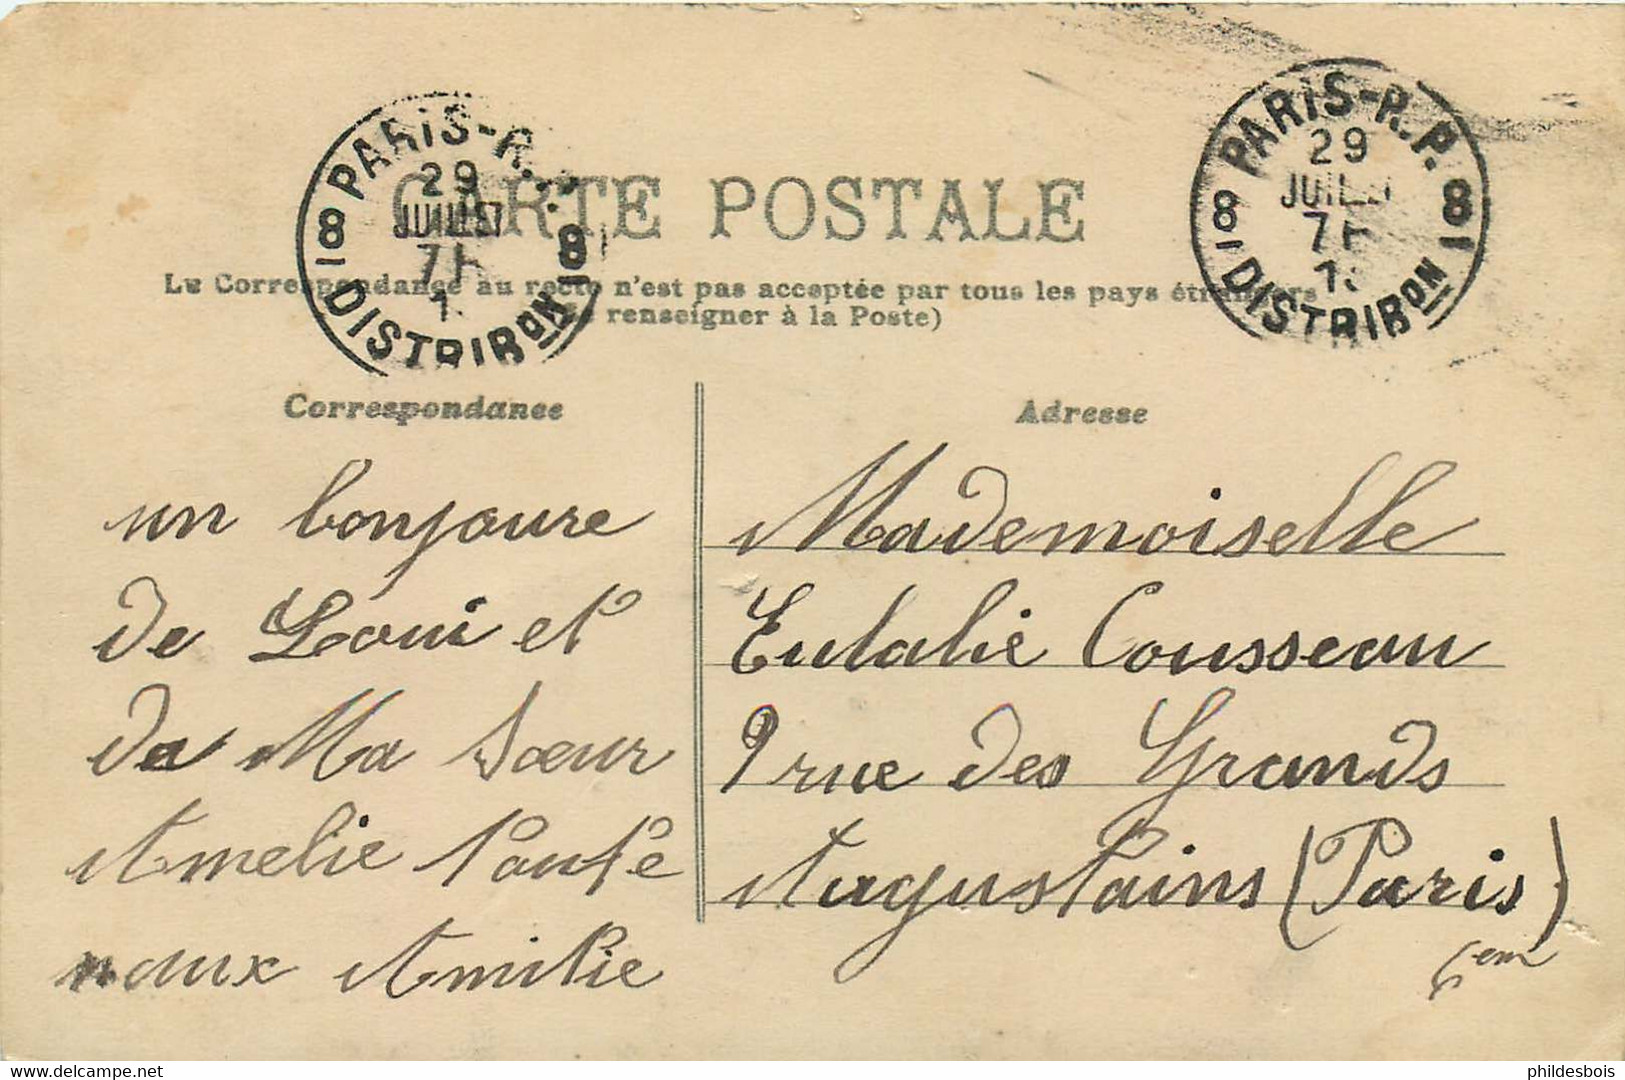 PARIS-R.
29
JUILLET
7H
1
8 8
DISTRIBON
PARIS-R.P.
29
JUILLET
7H
1
8 8
DISTRIBON
CARTE POSTALE
La Correspondance au recto n'est pas acceptée par tous les pays étrangers
renseigner à la Poste)
Correspondance
un bonjoure
de Loui et
de Ma Sœur
Amelie toute
naux Amitie
Adresse
Mademoiselle
Eulalie Cousseau
9 rue des Grands
Augustains (Paris)
6em
www.delcampe.net
phildesbois